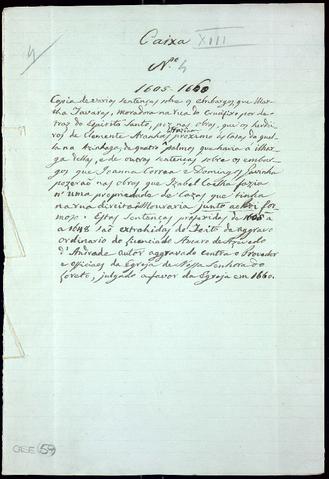 4
Caixa XIII
Nº 4
1605-1660
Copia de varias sentenças sobre os embargos, que Mar-
tha Tavares, moradora na rua do Crucifixo, por de-
traz do Espirito Santo, poz nas obras, que os herdei-
ros de Clemente Aranha fazião proximo ás casas da quel-
la na azinhaga, de quatro palmos que havia á ilhar-
ga dellas, e de outras sentenças sobre os embar-
gos que Joanna Correa e Domingos
pozerão nas obras que Izabel Coelha fazia
n'uma propriedade de Cazas que tinha
na rua direita á Mouraria junto ao
mozo: Estas Sentenças proferidas de 1605
a 1648 são extrahidas do feito de aggravo
ordinario do licenciado Alvaro de Azevedo
d'Andrade autor aggravado contra o Provedor
e officiaes da Egreja de Nossa Senhora do
Loreto, julgado a favor da Egreja em 1660.
CEE (59)